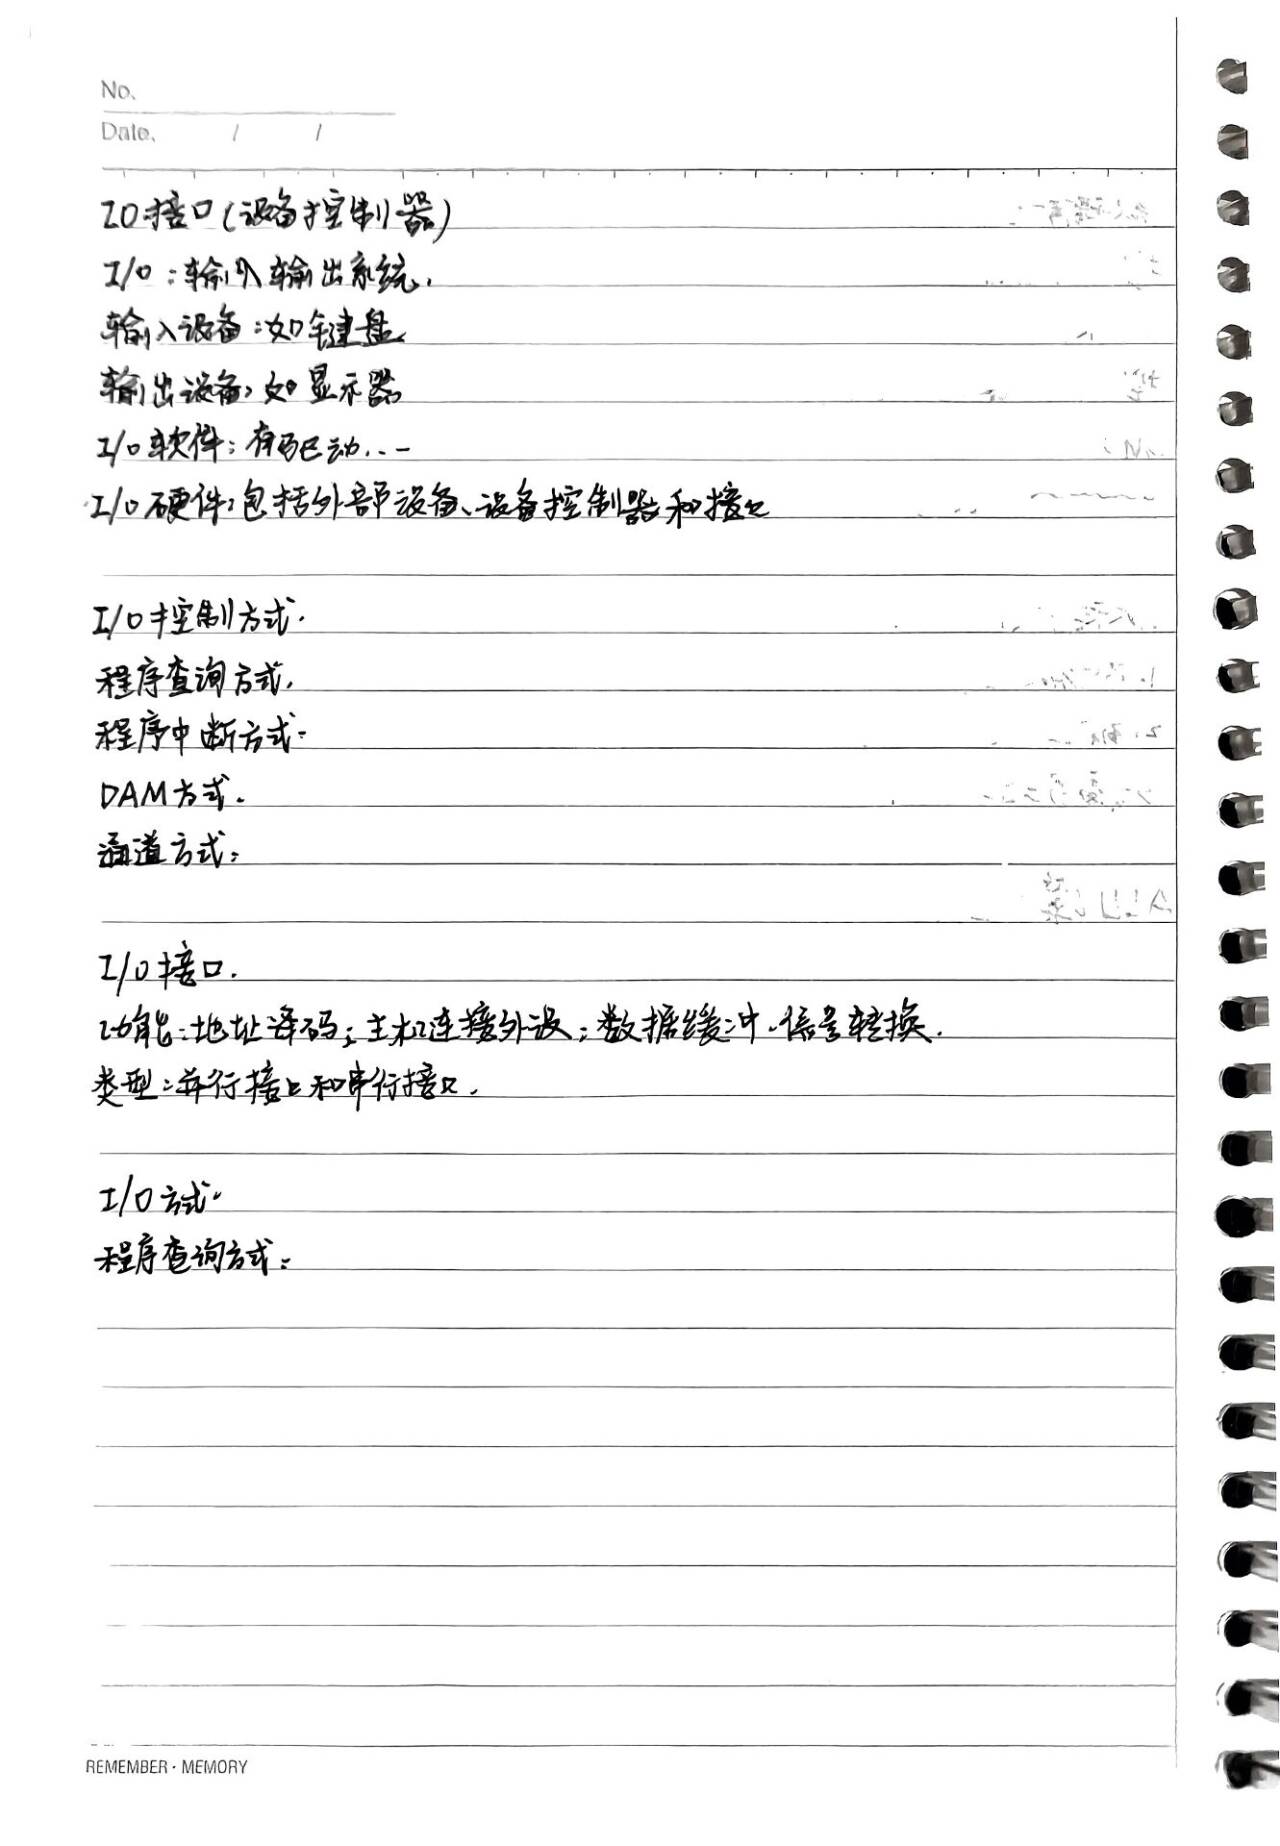 No.
Date. / /
IO接口(设备控制器)
I/O:输入输出系统.
输入设备:如键盘
输出设备,如显示器
I/O软件:有驱动...
I/O硬件:包括外部设备、设备控制器和接口
I/O控制方式.
程序查询方式.
程序中断方式.
DAM方式.
通道方式:
I/O接口.
功能:地址译码;主机连接外设;数据缓冲.信号转换.
类型:并行接口和串行接口.
I/O方式.
程序查询方式:
REMEMBER · MEMORY